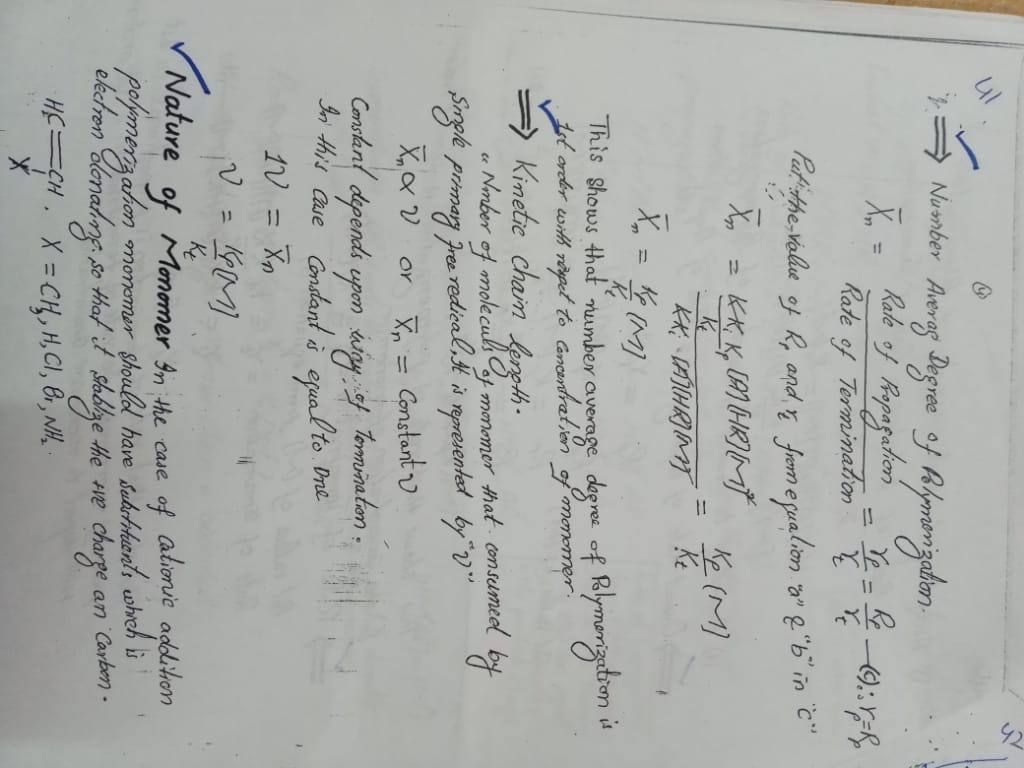 41
42
⇒ Number Averag Degree of Polymerization.
X̄n = Rate of Propagation / Rate of Termination = rp/rt = Rp/rt —(c) ∴ rp=Rp
Put the value of Rp and rt from equation "a" & "b" in "c"
X̄n = KKi/Kt Kp [A][HR][M]² / KKi [A][HR][M] = Kp/Kt [M]
X̄n = Kp/Kt [M]
This shows that number average degree of Polymerization is
1st order with respect to concentration of monomer.
⇒ Kinetic chain length.
"Number of molecules of monomer that consumed by
Single primary free redical. It is represented by "ν"
X̄n ∝ ν or X̄n = Constant ν
Constant depends upon way of termination.
In this case Constant is equal to one
1ν = X̄n
ν = Kp/Kt [M]
Nature of Monomer In the case of cationic addition
polymerization monomer should have substituents which is
electron donating, so that it stablize the +ve charge an carbon.
H₂C=CH. X = CH₃, H, Cl, Br, NH₂.
X